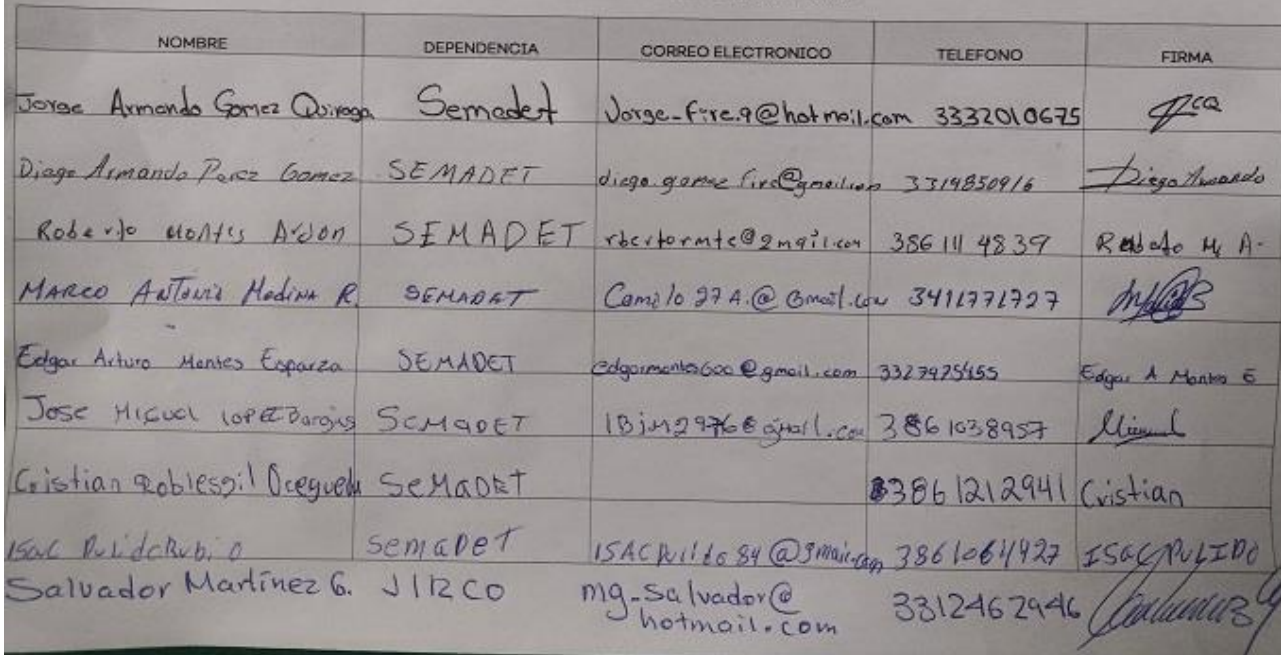 NOMBRE DEPENDENCIA CORREO ELECTRONICO TELEFONO FIRMA
Jorge Armando Gomez Quiroga Semadet Jorge_fire.9@hotmail.com 3332010675
Diego Armando Perez Gomez SEMADET diego.gomez.fire@gmail.com 3319850916 Diego Armando
Roberto Montes Ardon SEMADET rbertormte@gmail.com 386 111 4839 Roberto M A.
MARCO ANTONIO MEDINA R. SEMADET Camilo 27 A.@Gmail.com 3411771727
Edgar Arturo Montes Esparza SEMADET edgarmontes600@gmail.com Edgar A Montes E
JOSE MIGUEL LOPEZ Bargas SEMADET 3861038957 Miguel
Cristian Roblesgil Oceguedu SeMaDET 33861212941 Cristian
ISac Pulido Rubio semaDeT ISACPulido84@gmail.com 3861064927 ISacPULIDO
Salvador Martínez G. JIRCO mg_salvador@ 3312462946
hotmail.com